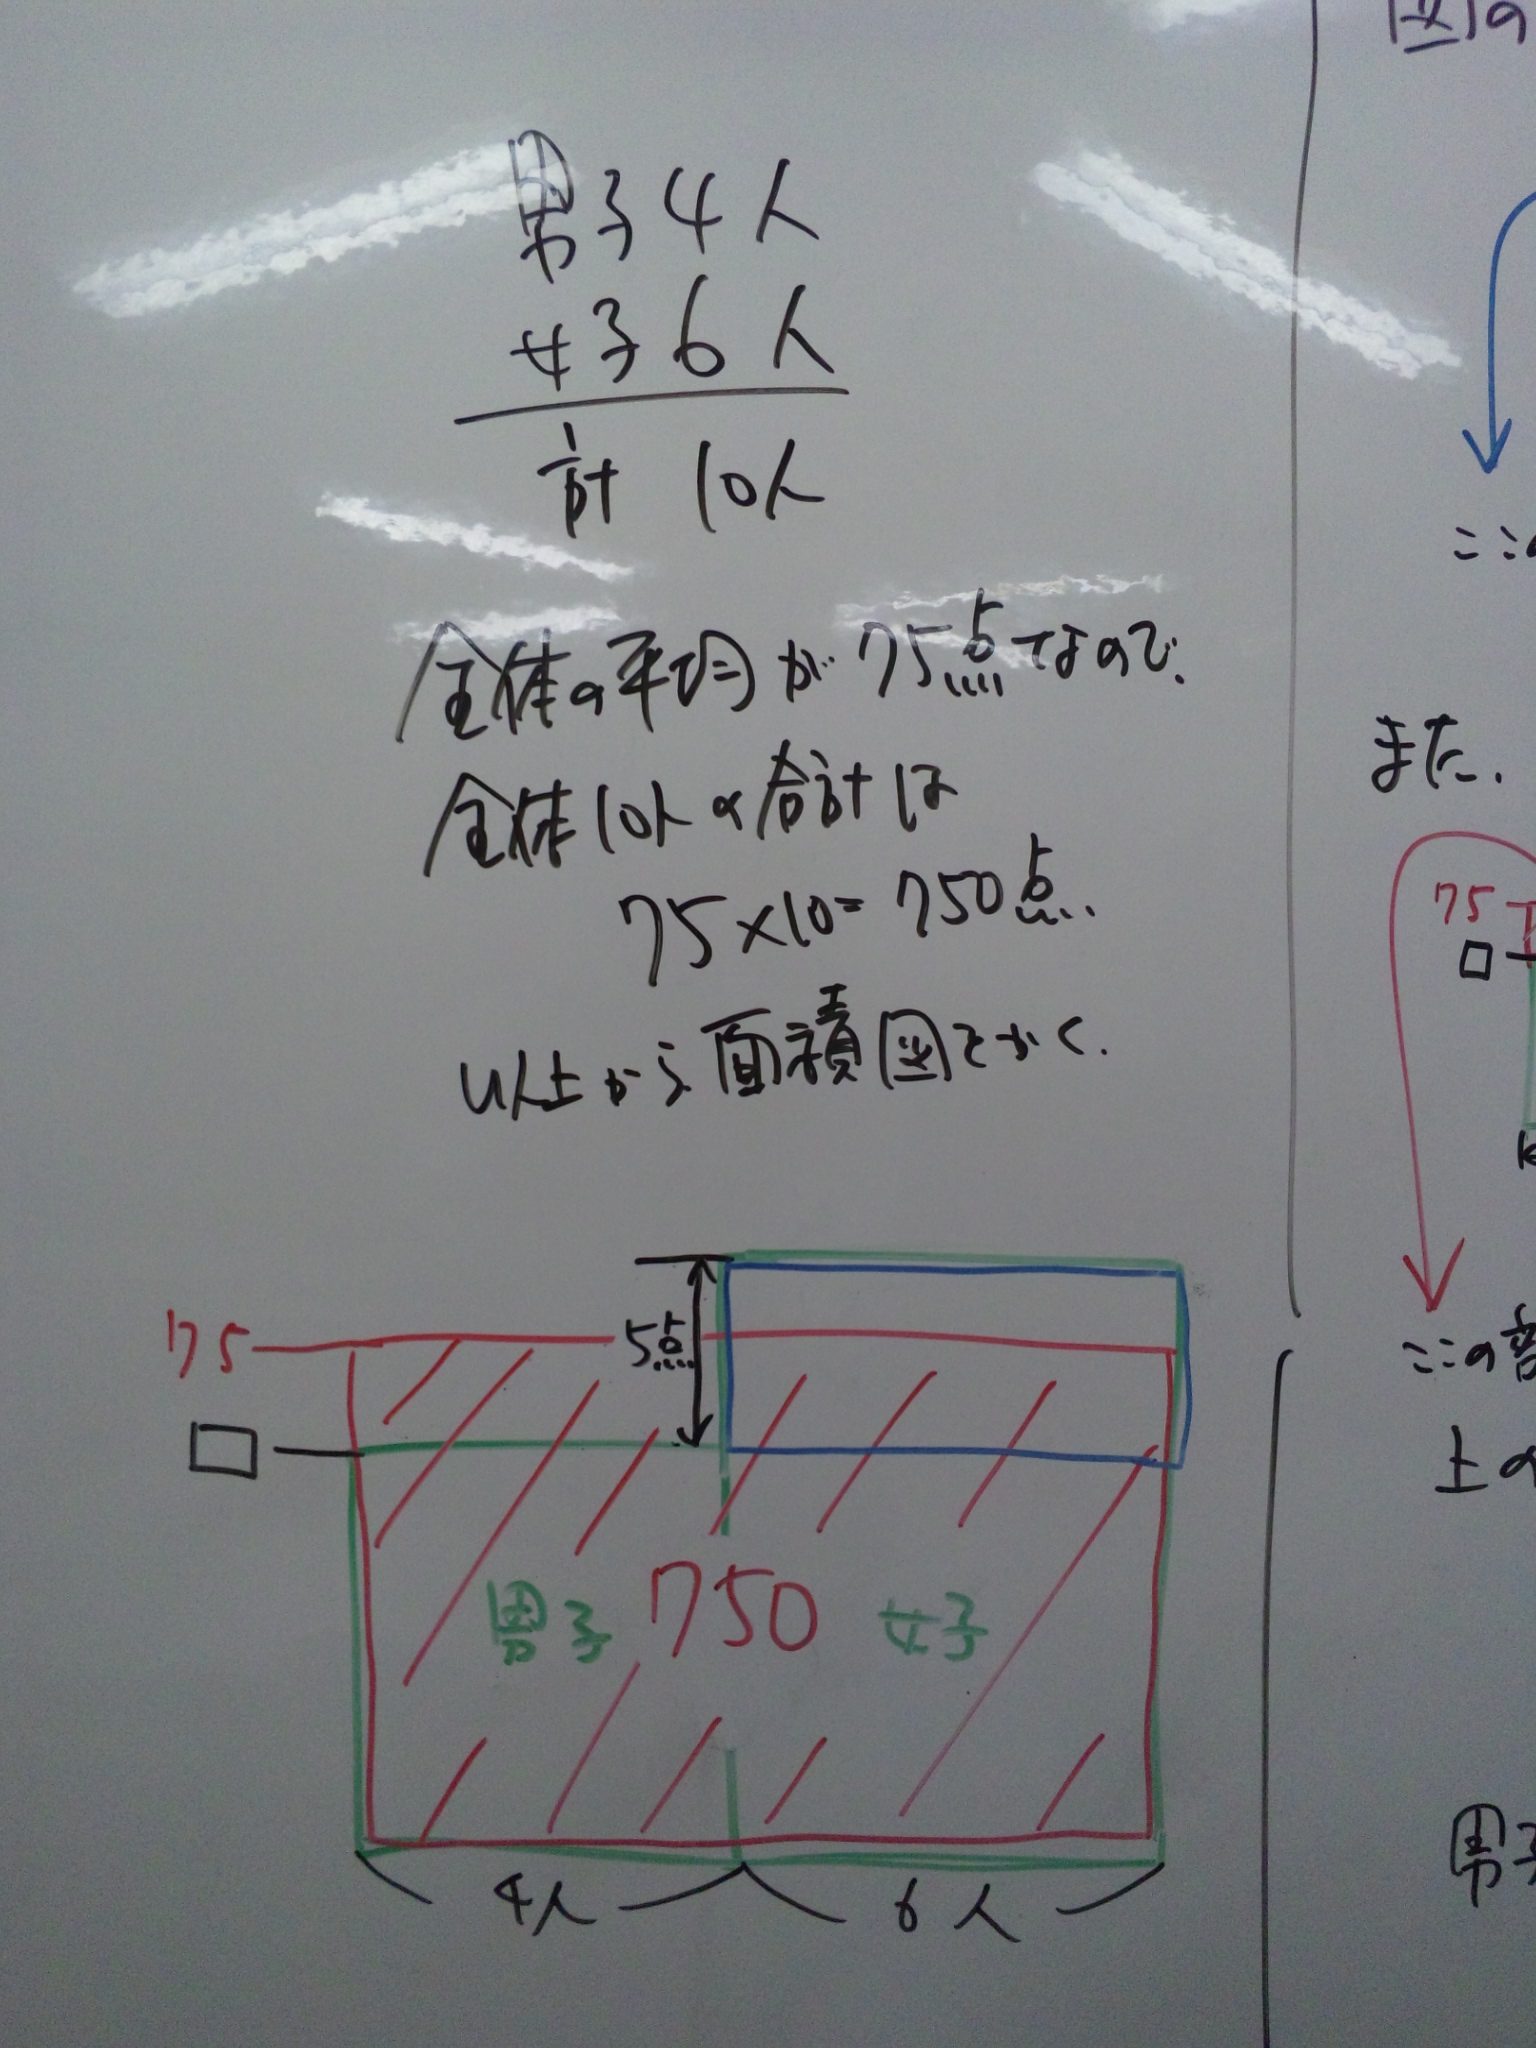 男子4人
女子6人
計 10人
全体の平均が75点なので、
全体10人の合計は
75×10=750点
以上から面積図をかく.
5点
75
□
男子 750 女子
4人 6人
図の
ここの
また、
75
□
ここの
上の
男子